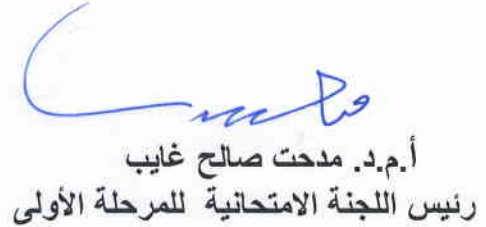 أ.م.د. مدحت صالح غايب
رئيس اللجنة الامتحانية للمرحلة الأولى